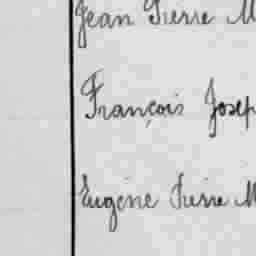 Jean Pierre M
François Josep
Eugène Pierre M